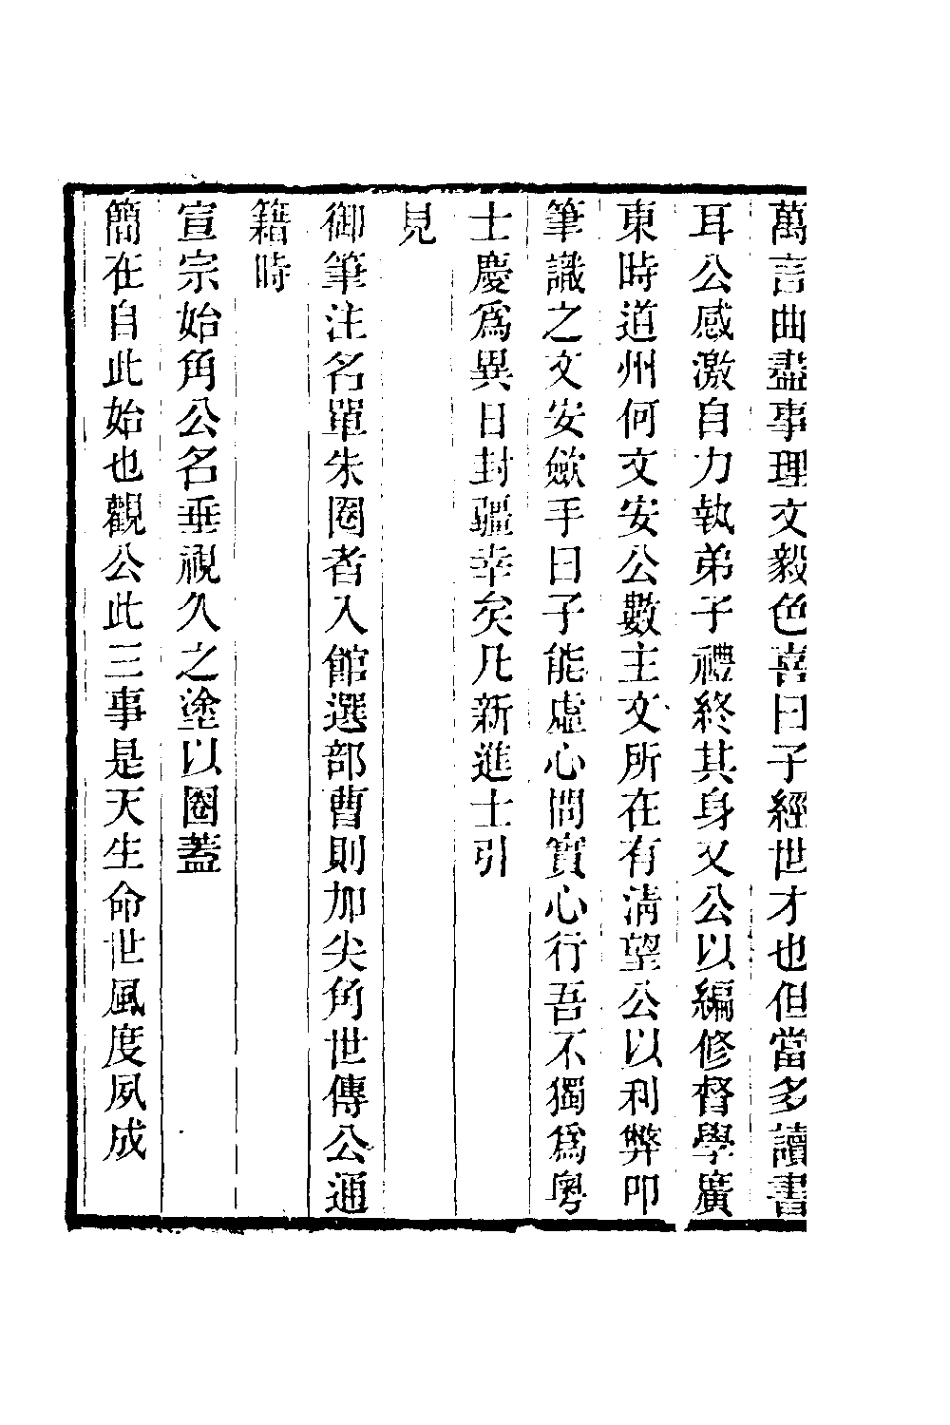 萬言曲盡事理文毅色喜曰子經世才也但當多讀書
耳公感激自力執弟子禮終其身又公以編修督學廣
東時道州何文安公數主文所在有清望公以利弊叩
筆識之文安歛手曰子能虛心問實心行吾不獨爲粵
士慶爲異日封疆幸矣凡新進士引
見
御筆注名單朱圈者入館選部曹則加尖角世傳公通
籍時
宣宗始角公名垂視久之塗以圈蓋
簡在自此始也觀公此三事是天生命世風度夙成